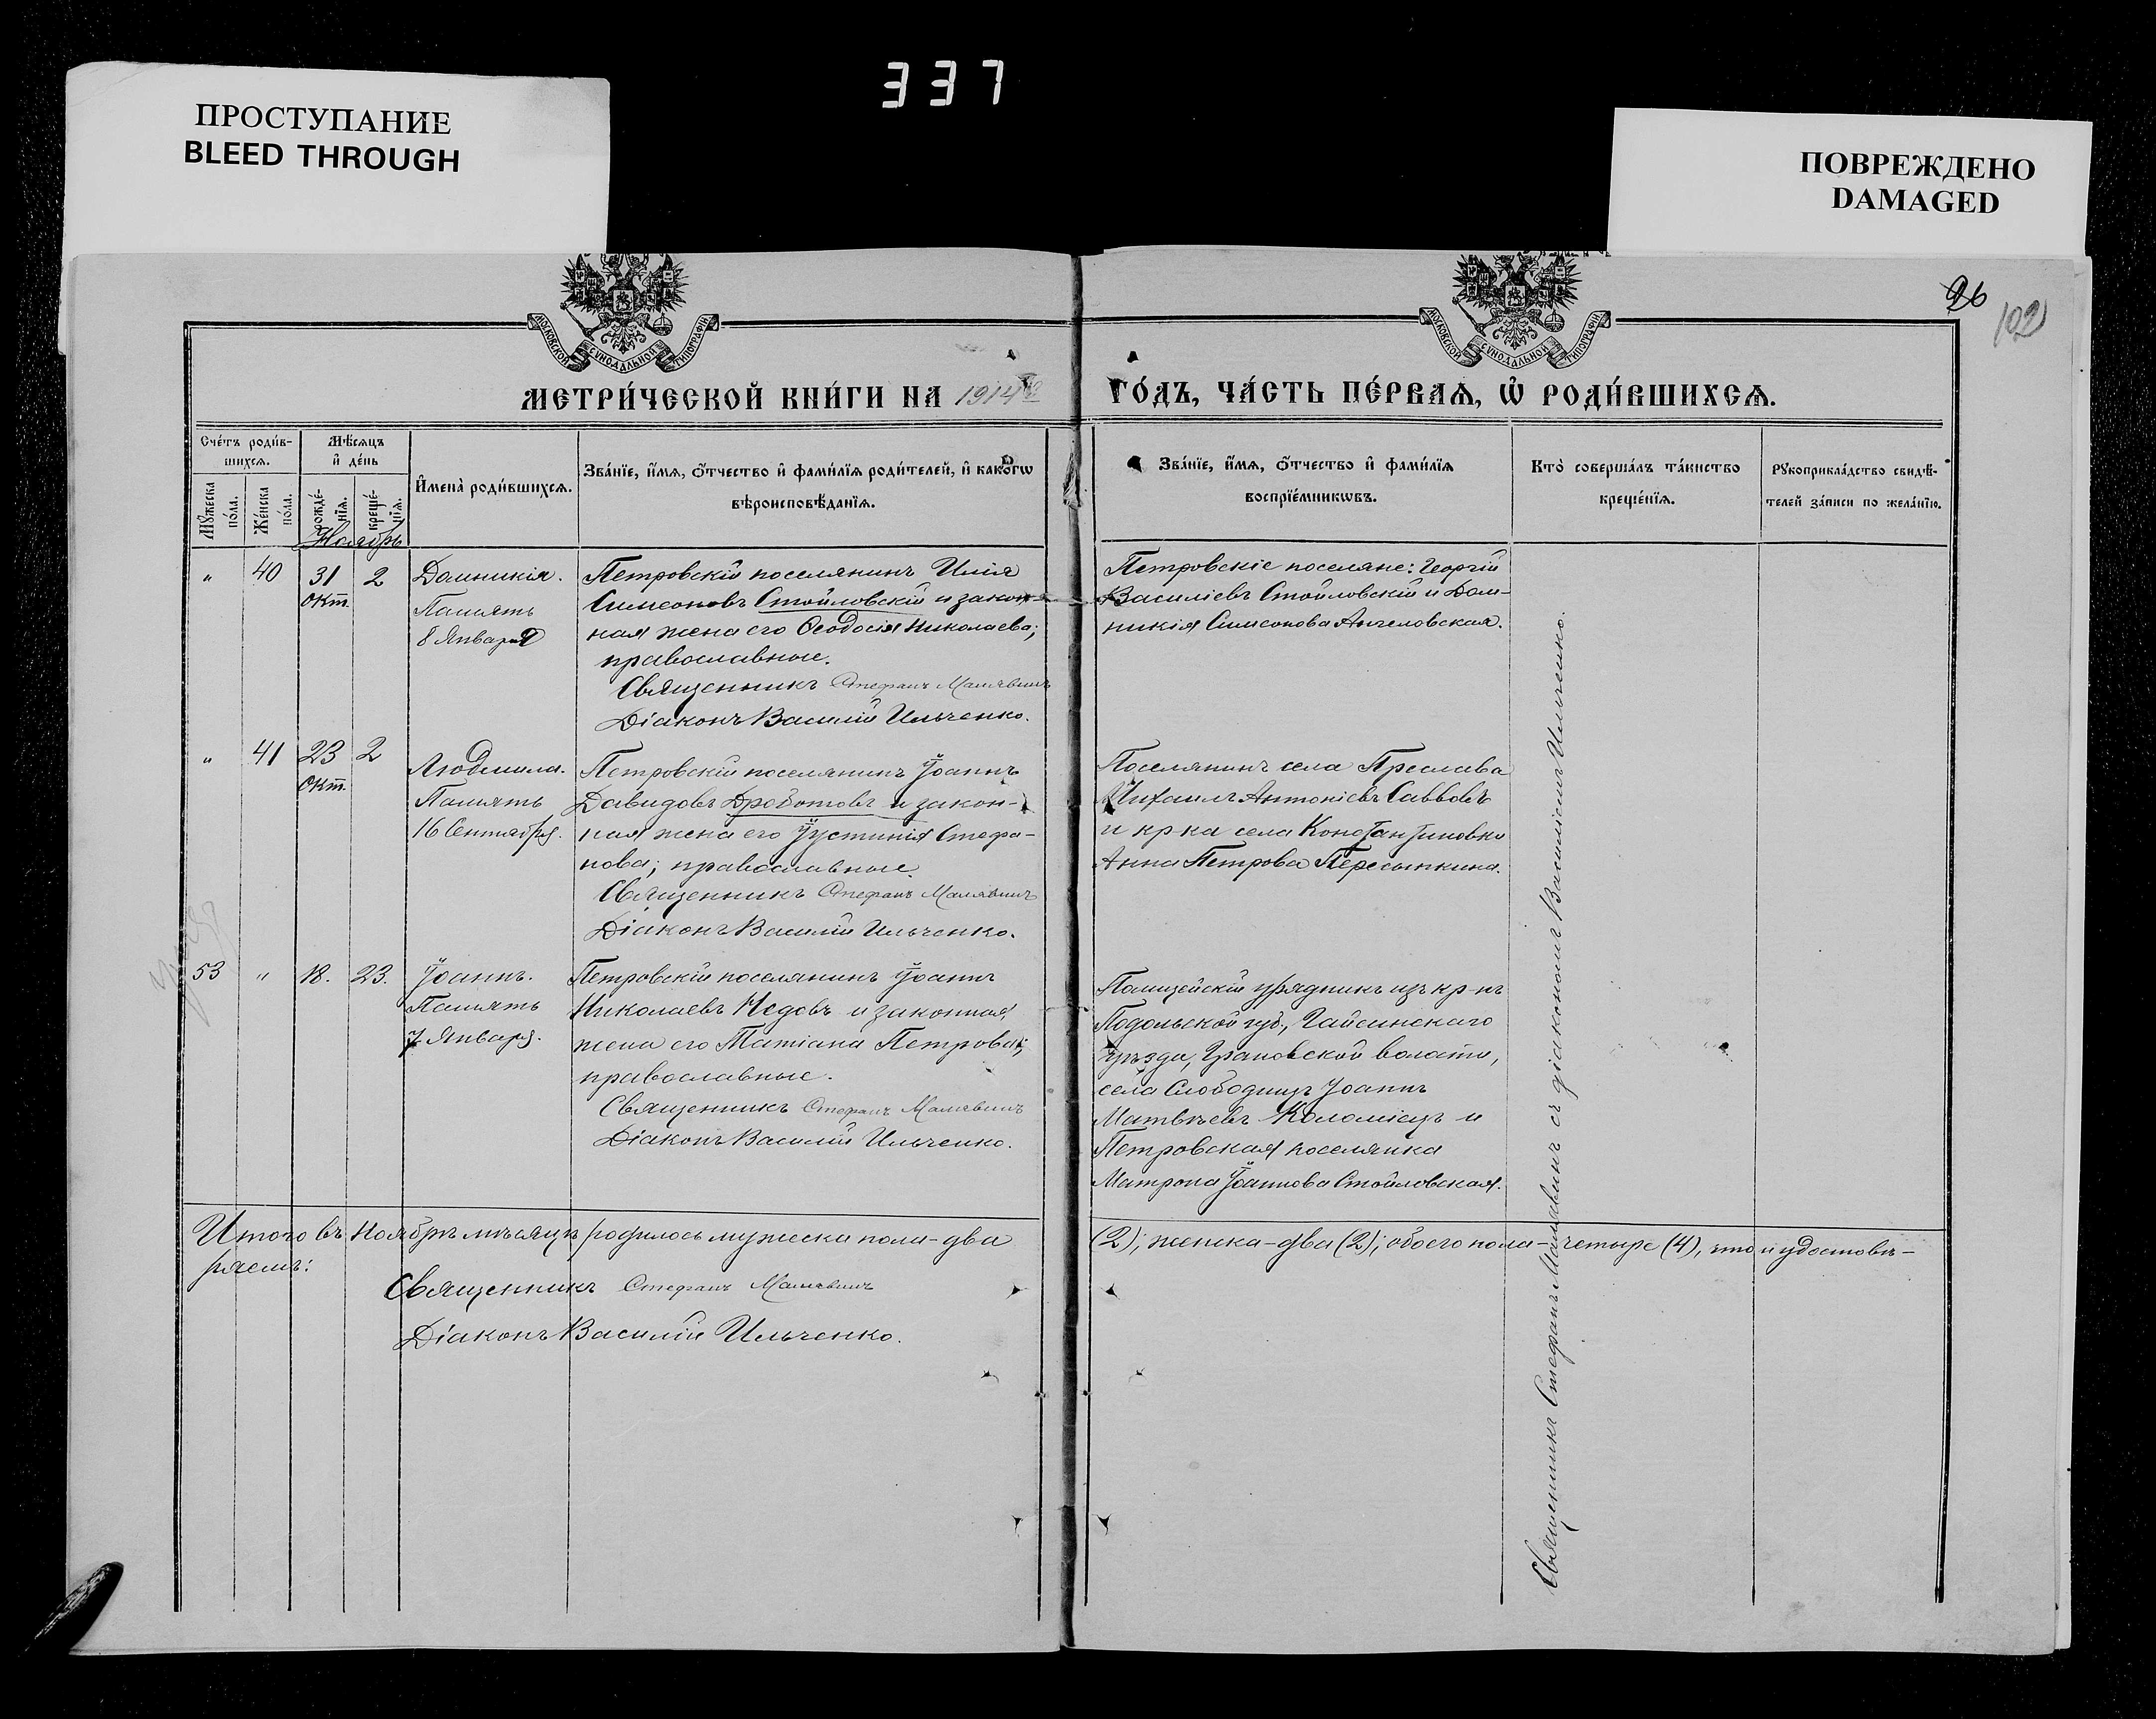 337
ПРОСТУПАНИЕ
BLEED THROUGH
ПОВРЕЖДЕНО
DAMAGED
26
102
МОСКОВСКОЙ СУНОДАЛЬНОЙ ТИПОГРАФІИ
МОСКОВСКОЙ СУНОДАЛЬНОЙ ТИПОГРАФІИ
МЕТРИ́ЧЕСКОЙ КНИ́ГИ НА 1914й ГО́ДЪ, ЧА́СТЬ ПЕ́РВАѦ, Ѡ҆ РОДИ́ВШИХСѦ.
Сче́тъ роди́в-
шихсѧ.
Мѣ́сѧцъ
и҆ де́нь
И҆мена̀ роди́вшихсѧ.
Зва́нїе, и҆́мѧ, ѻ҆́тчество и҆ фами́лїѧ роди́телей, и҆ како́гѡ
вѣроисповѣ́данїѧ.
Зва́нїе, и҆́мѧ, ѻ҆́тчество и҆ фами́лїѧ
воспрїе́мникѡвъ.
Кто̀ соверша́лъ та́инство
креще́нїѧ.
Рꙋкоприкла́дство свидѣ́-
телей за́писи по жела́нїю.
Мꙋ́жеска
по́ла.
Же́нска
по́ла.
рожде́-
нїѧ.
креще́-
нїѧ.
Ноябрь
" 40 31 окт. 2
Домникія.
Память
8 Января
Петровскій поселянинъ Илія
Симеоновъ Стойловскій и закон-
ная жена его Ѳеодосія Николаева;
православные.
Священникъ Стефанъ Малявинъ
Діаконъ Василій Ильченко.
Петровскіе поселяне: Георгій
Василіевъ Стойловскій и Дом-
никія Симеонова Ангеловская.
" 41 23 окт. 2
Людмила.
Память
16 Сентября.
Петровскій поселянинъ Іоаннъ
Давидовъ Дроботовъ и закон-
ная жена его Іустинія Стефа-
нова; православные.
Священникъ Стефанъ Малявинъ
Діаконъ Василій Ильченко.
Поселянинъ села Преслава
Михаилъ Антоніевъ Савовъ
и кр-ка села Константиновки
Анна Петрова Пересыпкина.
53 " 18. 23.
Іоаннъ.
Память
7 Января.
Петровскій поселянинъ Іоаннъ
Николаевъ Недовъ и законная
жена его Татіана Петрова;
православные.
Священникъ Стефанъ Малявинъ
Діаконъ Василій Ильченко.
Полицейскій урядникъ изъ кр-нъ
Подольской губ., Гайсинскаго
уѣзда, Грановской волости,
села Слободищъ Іоаннъ
Матвѣевъ Коломіецъ и
Петровская поселянка
Матрона Іоаннова Стойловская.
Священникъ Стефанъ Малявинъ съ діакономъ Василіемъ Ильченко.
Итого въ Ноябрѣ мѣсяцѣ родилось мужеска пола-два (2); женска-два (2); обоего пола-четыре (4), что и удостовѣ-
ряемъ:
Священникъ Стефанъ Малявинъ
Діаконъ Василій Ильченко.